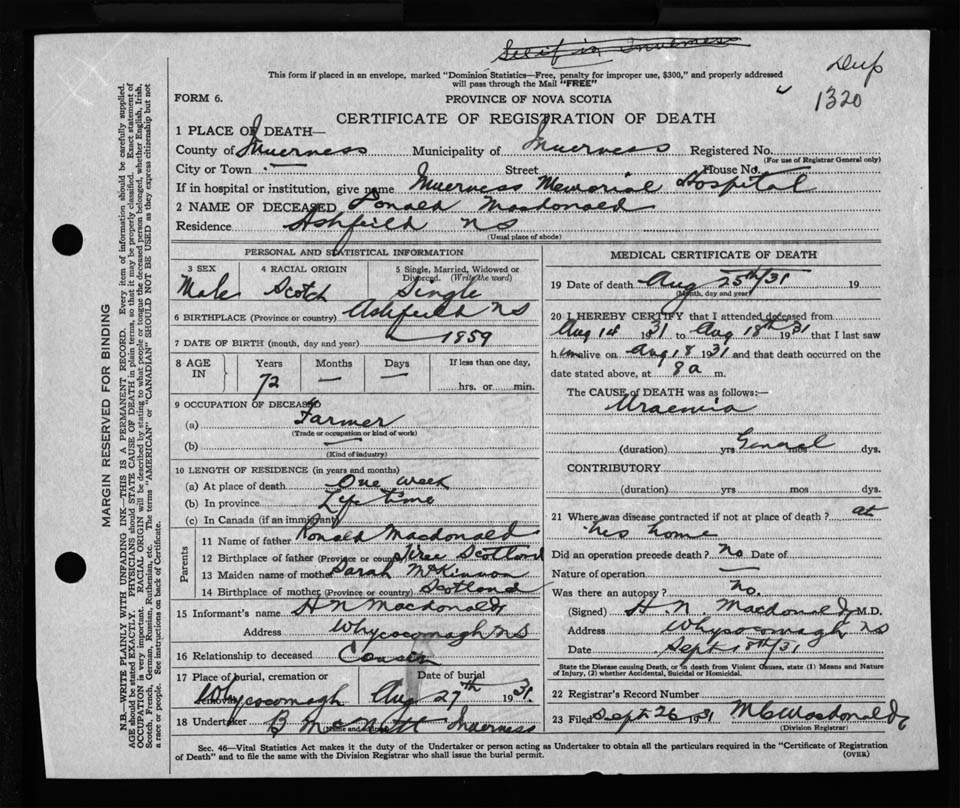 Dup
1320
This form if placed in an envelope, marked "Dominion Statistics—Free, penalty for improper use, $300," and properly addressed
will pass through the Mail "FREE"
FORM 6.
PROVINCE OF NOVA SCOTIA
CERTIFICATE OF REGISTRATION OF DEATH
1 PLACE OF DEATH—
County of Inverness Municipality of Inverness Registered No.
(For use of Registrar General only)
City or Town — Street House No.
If in hospital or institution, give name Inverness Memorial Hospital
2 NAME OF DECEASED Ronald Macdonald
Residence Ashfield NS
(Usual place of abode)
PERSONAL AND STATISTICAL INFORMATION
3 SEX 4 RACIAL ORIGIN 5 Single, Married, Widowed or Divorced. (Write the word)
Male Scotch Single
6 BIRTHPLACE (Province or country) Ashfield NS
7 DATE OF BIRTH (month, day and year) 1859
8 AGE IN Years Months Days If less than one day,
72 — — hrs. or min.
9 OCCUPATION OF DECEASED
(a) Farmer
(Trade or occupation or kind of work)
(b) —
(Kind of industry)
10 LENGTH OF RESIDENCE (in years and months)
(a) At place of death One week
(b) In province Life time
(c) In Canada (if an immigrant)
Parents
11 Name of father Ronald Macdonald
12 Birthplace of father (Province or country) Tiree Scotland
13 Maiden name of mother Sarah McKinnon
14 Birthplace of mother (Province or country) Scotland
15 Informant's name H N Macdonald
Address Whycocomagh NS
16 Relationship to deceased Cousin
17 Place of burial, cremation or removal Date of burial
Whycocomagh Aug 27th 1931
18 Undertaker B McNutt Inverness
(Name and address)
MEDICAL CERTIFICATE OF DEATH
19 Date of death Aug 25th/31 19
(Month, day and year)
20 I HEREBY CERTIFY that I attended deceased from
Aug 14 1931 to Aug 18th 1931 that I last saw
him alive on Aug 18 1931 and that death occurred on the
date stated above, at 8 a m.
The CAUSE OF DEATH was as follows:—
Uraemia
General
(duration) yrs mos dys.
CONTRIBUTORY
(duration) yrs mos dys.
21 Where was disease contracted if not at place of death? at
his home
Did an operation precede death? No Date of
Nature of operation —
Was there an autopsy? No.
(Signed) H. N. Macdonald M.D.
Address Whycocomagh NS
Date Sept 18th/31
State the Disease causing Death, or in death from Violent Causes, state (1) Means and Nature
of Injury, (2) whether Accidental, Suicidal or Homicidal.
22 Registrar's Record Number
23 Filed Sept 26 1931 M C Macdonald
(Division Registrar)
Sec. 46—Vital Statistics Act makes it the duty of the Undertaker or person acting as Undertaker to obtain all the particulars required in the "Certificate of Registration
of Death" and to file the same with the Division Registrar who shall issue the burial permit. (OVER)
MARGIN RESERVED FOR BINDING
N.B.—WRITE PLAINLY WITH UNFADING INK—THIS IS A PERMANENT RECORD. Every item of information should be carefully supplied.
AGE should be stated EXACTLY. PHYSICIANS should STATE CAUSE OF DEATH in plain terms, so that it may be properly classified. Exact statement of
OCCUPATION is very important. RACIAL ORIGIN will be described by stating to what people or tongue the deceased person belonged, whether English, Irish,
Scotch, French, German, Russian, Ruthenian, etc. The terms "AMERICAN" or "CANADIAN" SHOULD NOT BE USED as they express citizenship but not
a race or people. See instructions on back of Certificate.